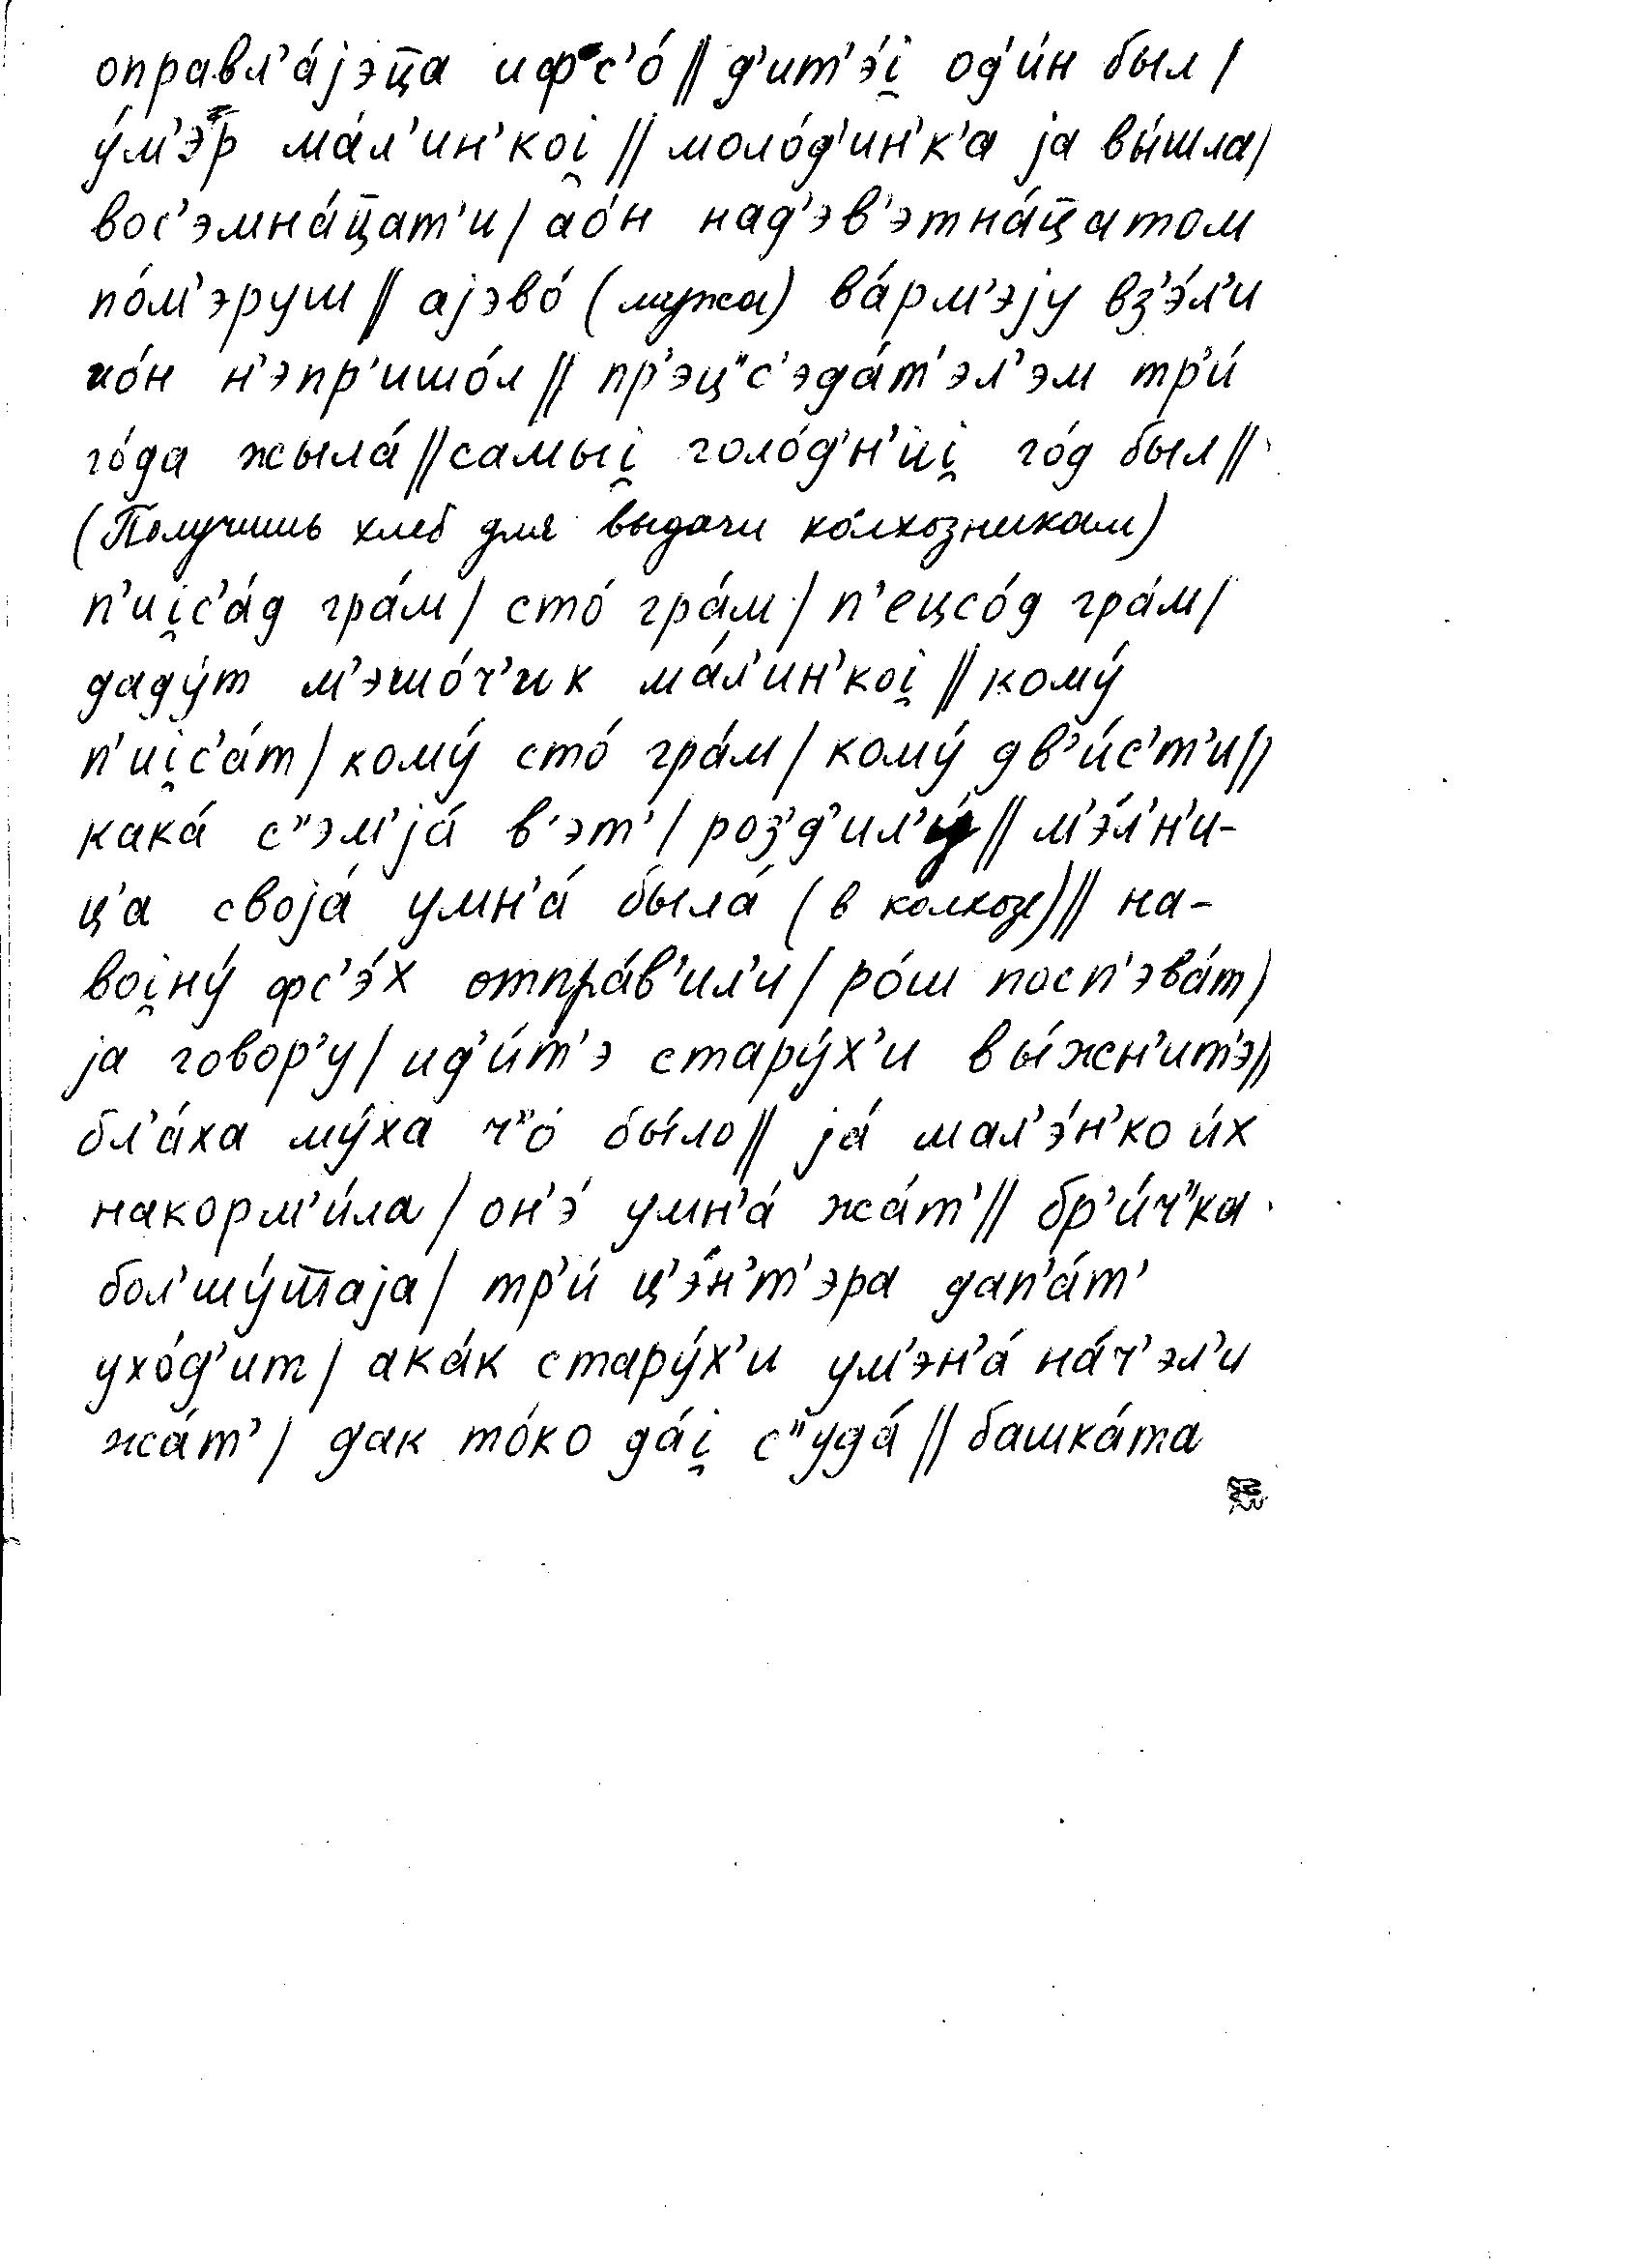 оправл’а́јэц̅а ифс’о́ || д’ит’э́i̯ од’и́н был |
у́м’эр ма́л’ин’коi̯ || моло́д’ин’к’а ја вы́шла |
вос’эмна́ц̅ат’и | ао́н над’эв’этна́ц̅атом
по́м’эруш || ајэво́ (мужа) ва́рм’эју вз’э́л’и
ио́н н’эпр’ишо́л || пр’эц”с’эда́т’эл’эм тр’и́
го́да жыла́ || самыi̯ голо́д’н’иi̯ го́д был ||
(Получишь хлеб для выдачи колхозникам)
п’иi̯с’а́д гра́м | сто́ гра́м | п’ецсо́д гра́м |
даду́т м’эшо́ч’ик ма́л’ин’коi̯ || кому́
п’иi̯с’а́т | кому́ сто́ гра́м | кому́ дв’и́с’т’и ||
кака́ с”эм’ја́ в’эт’ | роз’д’ил’и́ || м’э́л’н’и-
ц’а своја́ умн’а́ была́ (в колхозе) || на-
воi̯ну́ фс’э́х отпра́в’ил’и | ро́ш посп’эва́т |
ја говор’у | ид’и́т’э стару́х’и вы́жн’ит’э ||
бл’а́ха му́ха ч”о́ бы́ло || ја́ мал’э́н’ко и́х
накорм’и́ла | он’э́ умн’а́ жа́т’ || бр’и́ч”ка
бол’шу́т̅аја | тр’и́ ц’э́н’т’эра дап’а́т’
ухо́д’ит | ака́к стару́х’и ум’эн’а́ на́ч’эл’и
жа́т’ | дак то́ко да́i̯ с”уда́ || башка́та